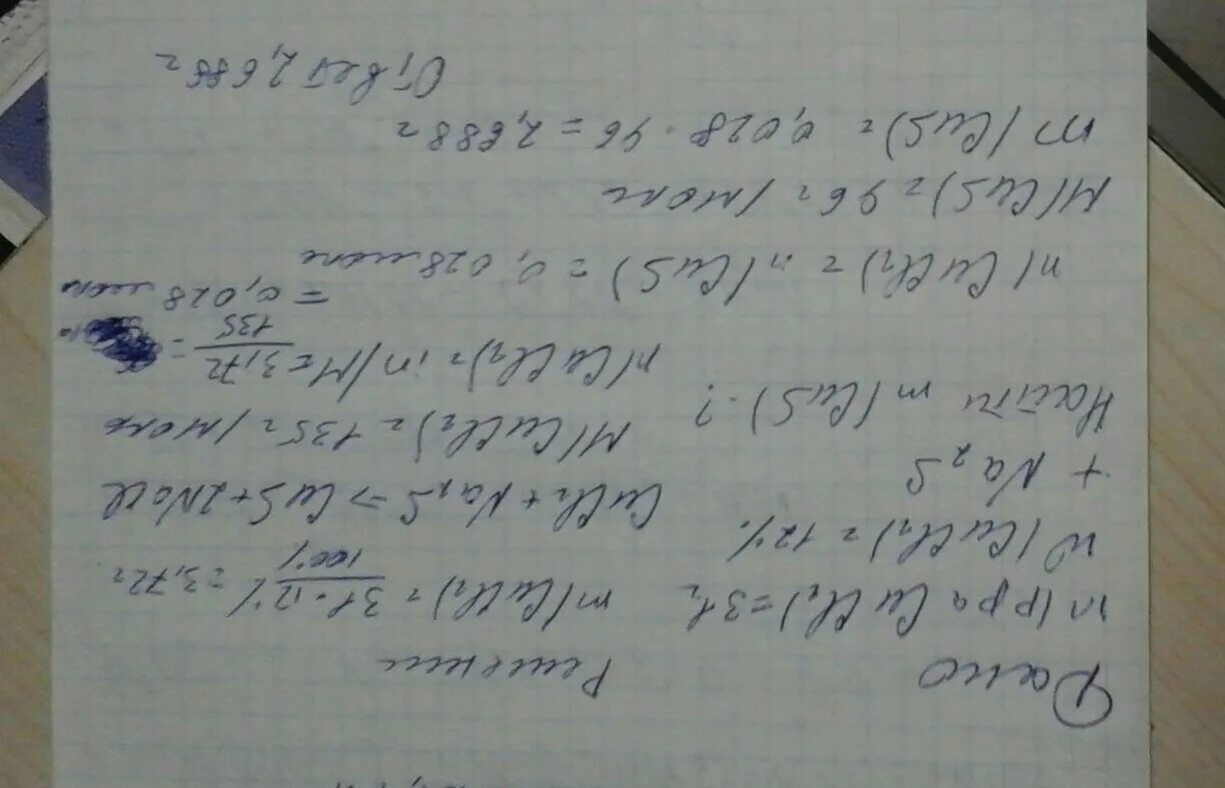 Дано
m(р-ра CuCl₂) = 31г
W(CuCl₂) = 12%
+ Na₂S
Найти m(CuS) - ?
Решение
m(CuCl₂) = 31 · 12% / 100% = 3,72г
CuCl₂ + Na₂S → CuS + 2NaCl
M(CuCl₂) = 135г/моль
n(CuCl₂) = m/M = 3,72 / 135 =
= 0,028 моль
n(CuCl₂) = n(CuS) = 0,028 моль
M(CuS) = 96г/моль
m(CuS) = 0,028 · 96 = 2,688г
Ответ 2,688г